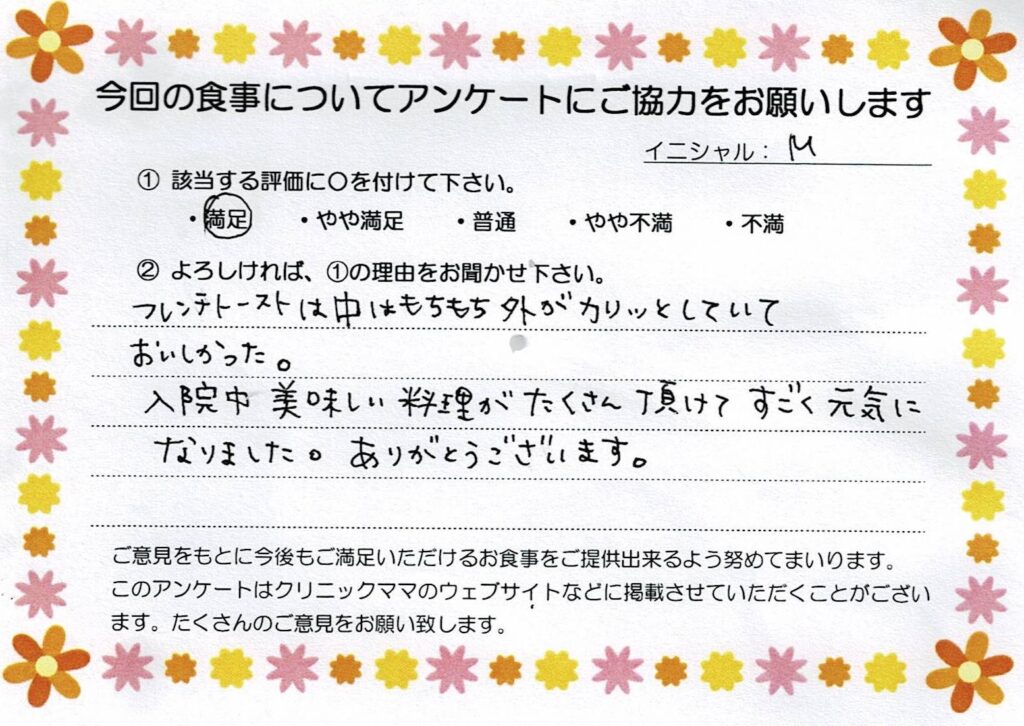 今回の食事についてアンケートにご協力をお願いします
イニシャル： M
① 該当する評価に〇を付けて下さい。
・満足 ・やや満足 ・普通 ・やや不満 ・不満
② よろしければ、①の理由をお聞かせ下さい。
フレンチトーストは中はもちもち外がカリッとしていて
おいしかった。
入院中 美味しい料理がたくさん頂けてすごく元気に
なりました。ありがとうございます。
ご意見をもとに今後もご満足いただけるお食事をご提供出来るよう努めてまいります。
このアンケートはクリニックママのウェブサイトなどに掲載させていただくことがござい
ます。たくさんのご意見をお願い致します。